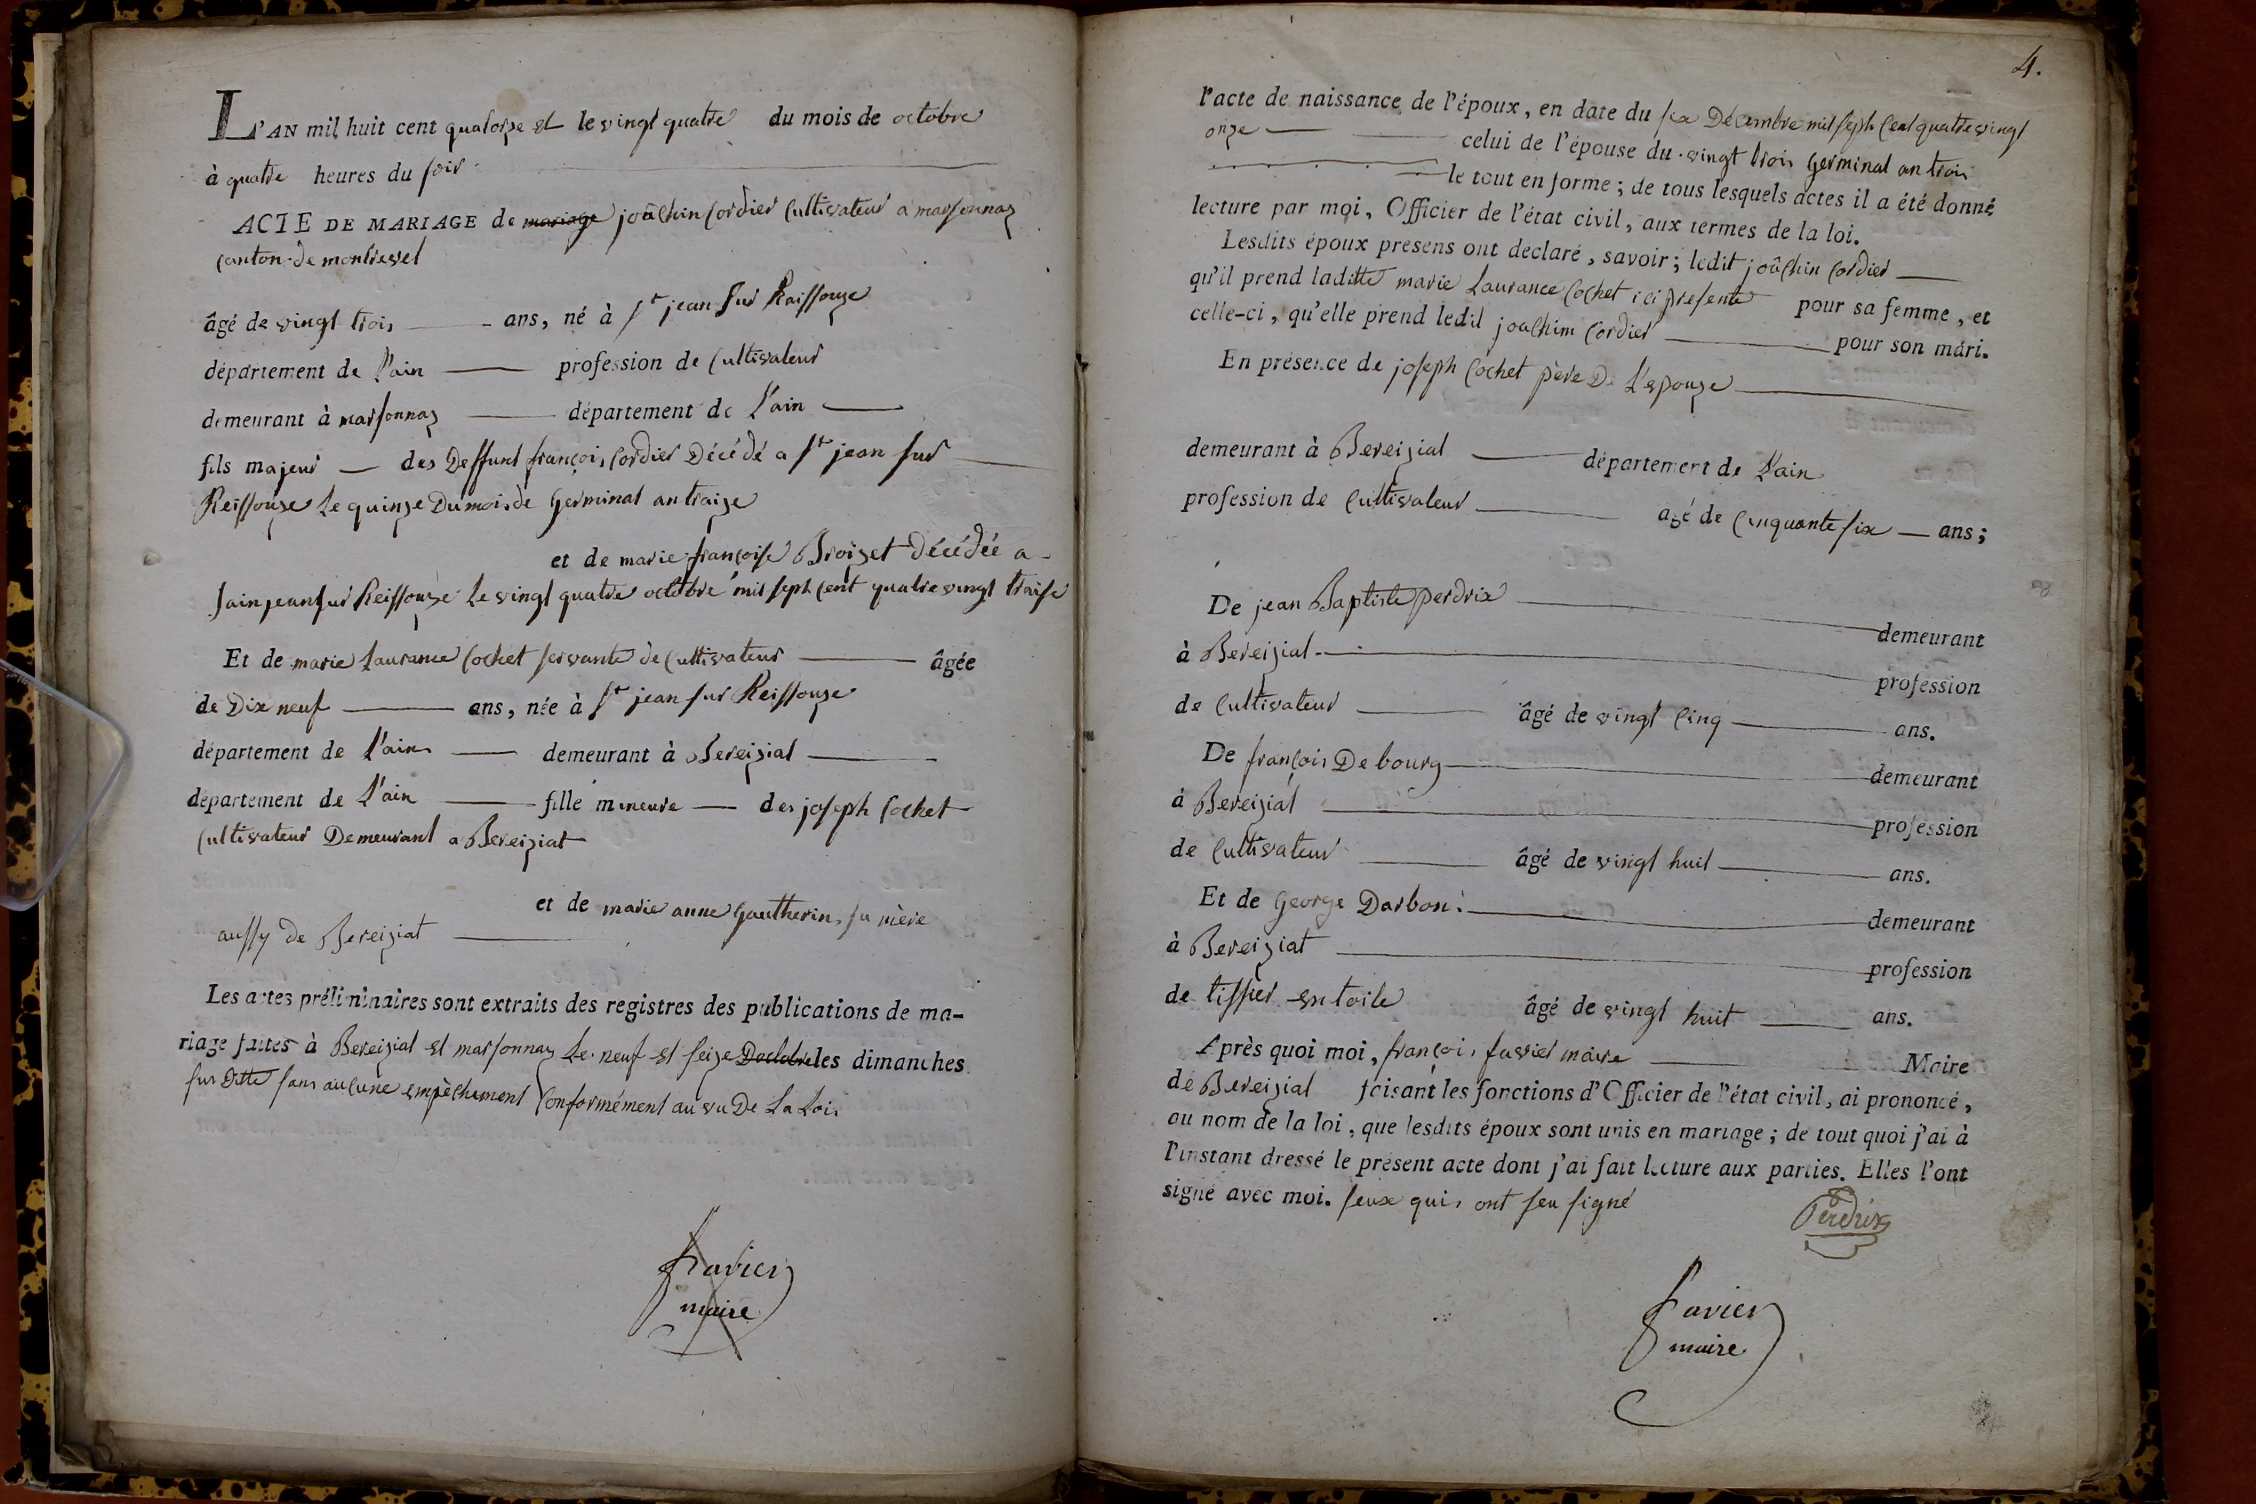 L'AN mil huit cent quatorze et le vingt quatre du mois de octobre
à quatre heures du soir
ACTE DE MARIAGE de mariage joâchin Cordier Cultivateur a marsonnaz
Canton de montrevel
âgé de vingt trois ans, né à St jean sur Raissouze
département de L'ain profession de Cultivateur
demeurant à marsonnaz département de L'ain
fils majeur des Deffunt françois Cordier Décédé a St jean sur
Reissouze Le quinze Du mois de Germinal an traize
et de marie françoise Broizet décédée a
Sain jean sur Reissouze Le vingt quatre octobre mil sept cent quatre vingt traise
Et de marie Laurance Cochet servante de Cultivateur âgée
de Dix neuf ans, née à St jean sur Reissouze
département de L'ain demeurant à Bereiziat
département de L'ain fille mineure des joseph Cochet
Cultivateur Demeurant a Bereiziat
et de marie anne Gautherin sa mère
aussy de Bereiziat
Les actes préliminaires sont extraits des registres des publications de ma-
riage faites à Bereiziat et marsonnaz Le neuf et seize Doctobre les dimanches
sur Ditte sans aucune empèchement Conformément au vu De La Loi
Favier
maire
4.
l'acte de naissance de l'époux, en date du six Décembre mil sept Cent quatre vingt
onze celui de l'épouse du vingt trois Germinal an trois
le tout en forme; de tous lesquels actes il a été donné
lecture par moi, Officier de l'état civil, aux termes de la loi.
Lesdits époux présens ont déclaré, savoir; ledit joâchin Cordier
qu'il prend laditte marie Laurance Cochet ici presente pour sa femme, et
celle-ci, qu'elle prend ledit joachim Cordier pour son mari.
En présence de joseph Cochet père De L'epouze
demeurant à Bereizial département de L'ain
profession de Cultivateur agé de Cinquante six ans;
De jean Baptiste perdrix demeurant
à Bereizial profession
de Cultivateur âgé de vingt Cinq ans.
De françois Debourg demeurant
à Bereizial profession
de Cultivateur âgé de vingt huit ans.
Et de George Darbon demeurant
à Bereiziat profession
de tissier en toile âgé de vingt huit ans.
Après quoi moi, françois favier maire Maire
de Bereizial faisant les fonctions d'Officier de l'état civil, ai prononcé,
au nom de la loi, que lesdits époux sont unis en mariage; de tout quoi j'ai à
l'instant dressé le présent acte dont j'ai fait lecture aux parties. Elles l'ont
signé avec moi. seux quis ont seu signé
Perdrix
Favier
maire